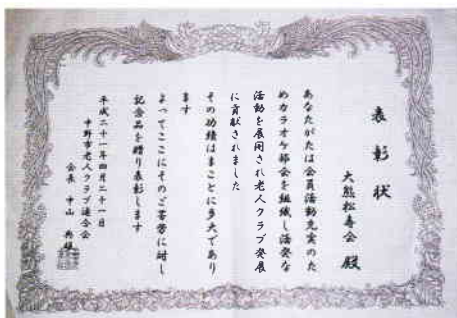 表彰状
大熊松寿会 殿
あなたがたは会員活動充実のた
めカラオケ部会を組織し活発な
活動を展開され老人クラブ発展
に貢献されました
その功績はまことに多大であり
ます
よってここにそのご苦労に対し
記念品を贈り表彰します
平成二十一年四月二十一日
中野市老人クラブ連合会
会長 中山